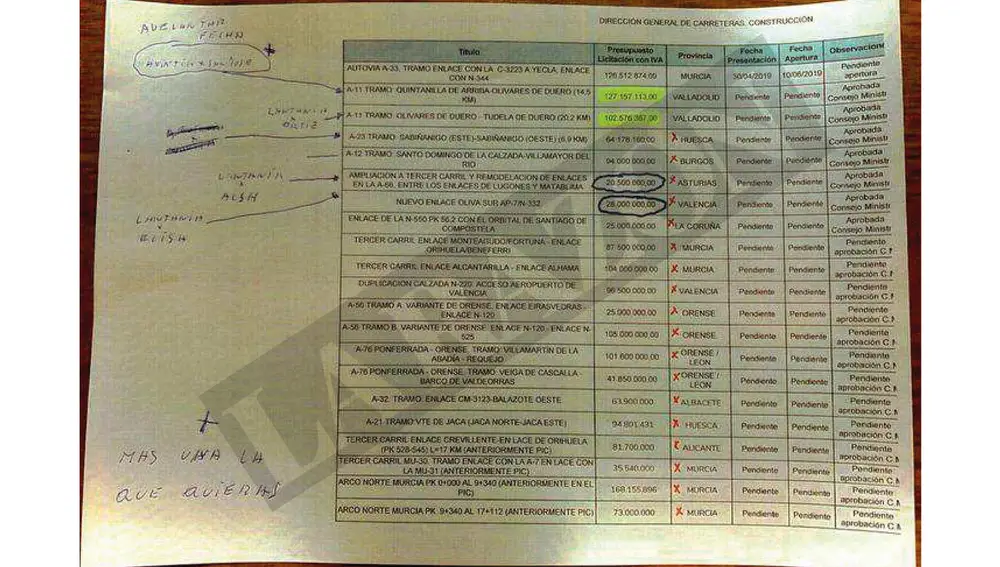 DIRECCIÓN GENERAL DE CARRETERAS. CONSTRUCCIÓN
ADELANTAR
FECHA
Título | Presupuesto Licitación con IVA | Provincia | Fecha Presentación | Fecha Apertura | Observacion
AUTOVIA A-33, TRAMO ENLACE CON LA C-3223 A YECLA, ENLACE CON N-344 | 126.512.874,00 | MURCIA | 30/04/2019 | 10/06/2019 | Pendiente apertura
A-11 TRAMO: QUINTANILLA DE ARRIBA-OLIVARES DE DUERO (14,5 KM) | 127.157.113,00 | VALLADOLID | Pendiente | Pendiente | Aprobada Consejo Ministr
LANTANIA
ORTIZ
A-11 TRAMO: OLIVARES DE DUERO - TUDELA DE DUERO (20.2 KM) | 102.576.367,00 | VALLADOLID | Pendiente | Pendiente | Aprobada Consejo Ministr
A-23 TRAMO: SABIÑANIGO (ESTE)-SABIÑANIGO (OESTE) (6.9 KM) | 64.178.160,00 | X HUESCA | Pendiente | Pendiente | Aprobada Consejo Ministr
A-12 TRAMO: SANTO DOMINGO DE LA CALZADA-VILLAMAYOR DEL RIO | 94.000.000,00 | X BURGOS | Pendiente | Pendiente | Aprobada Consejo Ministr
LANTANIA
x
ALSA
AMPLIACION A TERCER CARRIL Y REMODELACION DE ENLACES EN LA A-66, ENTRE LOS ENLACES DE LUGONES Y MATABLIMA | 20.500.000,00 | X ASTURIAS | Pendiente | Pendiente | Aprobada Consejo Ministr
LANTANIA
x
NUEVO ENLACE OLIVA SUR AP-7/N-332 | 28.000.000,00 | X VALENCIA | Pendiente | Pendiente | Aprobada Consejo Ministr
ENLACE DE LA N-550 PK 56.2 CON EL ORBITAL DE SANTIAGO DE COMPOSTELA | 25.000.000,00 | X LA CORUÑA | Pendiente | Pendiente | Aprobada Consejo Ministr
TERCER CARRIL ENLACE MONTEAGUDO/FORTUNA - ENLACE ORIHUELA/BENEFERRI | 87.500.000,00 | X MURCIA | Pendiente | Pendiente | Pendiente aprobación C.M
TERCER CARRIL ENLACE ALCANTARILLA - ENLACE ALHAMA | 104.000.000,00 | X MURCIA | Pendiente | Pendiente | Pendiente aprobación C.M
DUPLICACION CALZADA N-220. ACCESO AEROPUERTO DE VALENCIA | 96.500.000,00 | X VALENCIA | Pendiente | Pendiente | Pendiente aprobación C.M
A-56 TRAMO A. VARIANTE DE ORENSE. ENLACE EIRASVEDRAS - ENLACE N-120 | 25.000.000,00 | X ORENSE | Pendiente | Pendiente | Pendiente aprobación C.M
A-56 TRAMO B. VARIANTE DE ORENSE. ENLACE N-120 - ENLACE N-525 | 105.000.000,00 | X ORENSE | Pendiente | Pendiente | Pendiente aprobación C.M
A-76 PONFERRADA - ORENSE. TRAMO: VILLAMARTIN DE LA ABADIA - REQUEJO | 101.600.000,00 | X ORENSE / LEON | Pendiente | Pendiente | Pendiente aprobación C.M
A-76 PONFERRADA - ORENSE. TRAMO: VEIGA DE CASCALLA - BARCO DE VALDEORRAS | 41.850.000,00 | X ORENSE / LEON | Pendiente | Pendiente | Pendiente aprobación C.M
A-32. TRAMO: ENLACE CM-3123-BALAZOTE OESTE | 63.900.000 | X ALBACETE | Pendiente | Pendiente | Pendiente aprobación C.M
A-21 TRAMO VTE DE JACA (JACA NORTE-JACA ESTE) | 94.801.431 | X HUESCA | Pendiente | Pendiente | Pendiente aprobación C.M
TERCER CARRIL ENLACE CREVILLENTE-EN LACE DE ORIHUELA (PK 528-545) L=17 KM (ANTERIORMENTE PIC) | 81.700.000 | X ALICANTE | Pendiente | Pendiente | Pendiente aprobación C.M
TERCER CARRIL MU-30. TRAMO ENLACE CON LA A-7 EN LACE CON LA MU-31 (ANTERIORMENTE PIC) | 35.540.000 | X MURCIA | Pendiente | Pendiente | Pendiente aprobación C.M
ARCO NORTE MURCIA PK 0+000 AL 9+340 (ANTERIORMENTE EN EL PIC) | 168.155.896 | X MURCIA | Pendiente | Pendiente | Pendiente aprobación C.M
ARCO NORTE MURCIA PK 9+340 AL 17+112 (ANTERIORMENTE PIC) | 73.000.000 | X MURCIA | Pendiente | Pendiente | Pendiente aprobación C.M
+
MAS UNA LA
QUE QUIERAS
LA RAZÓN